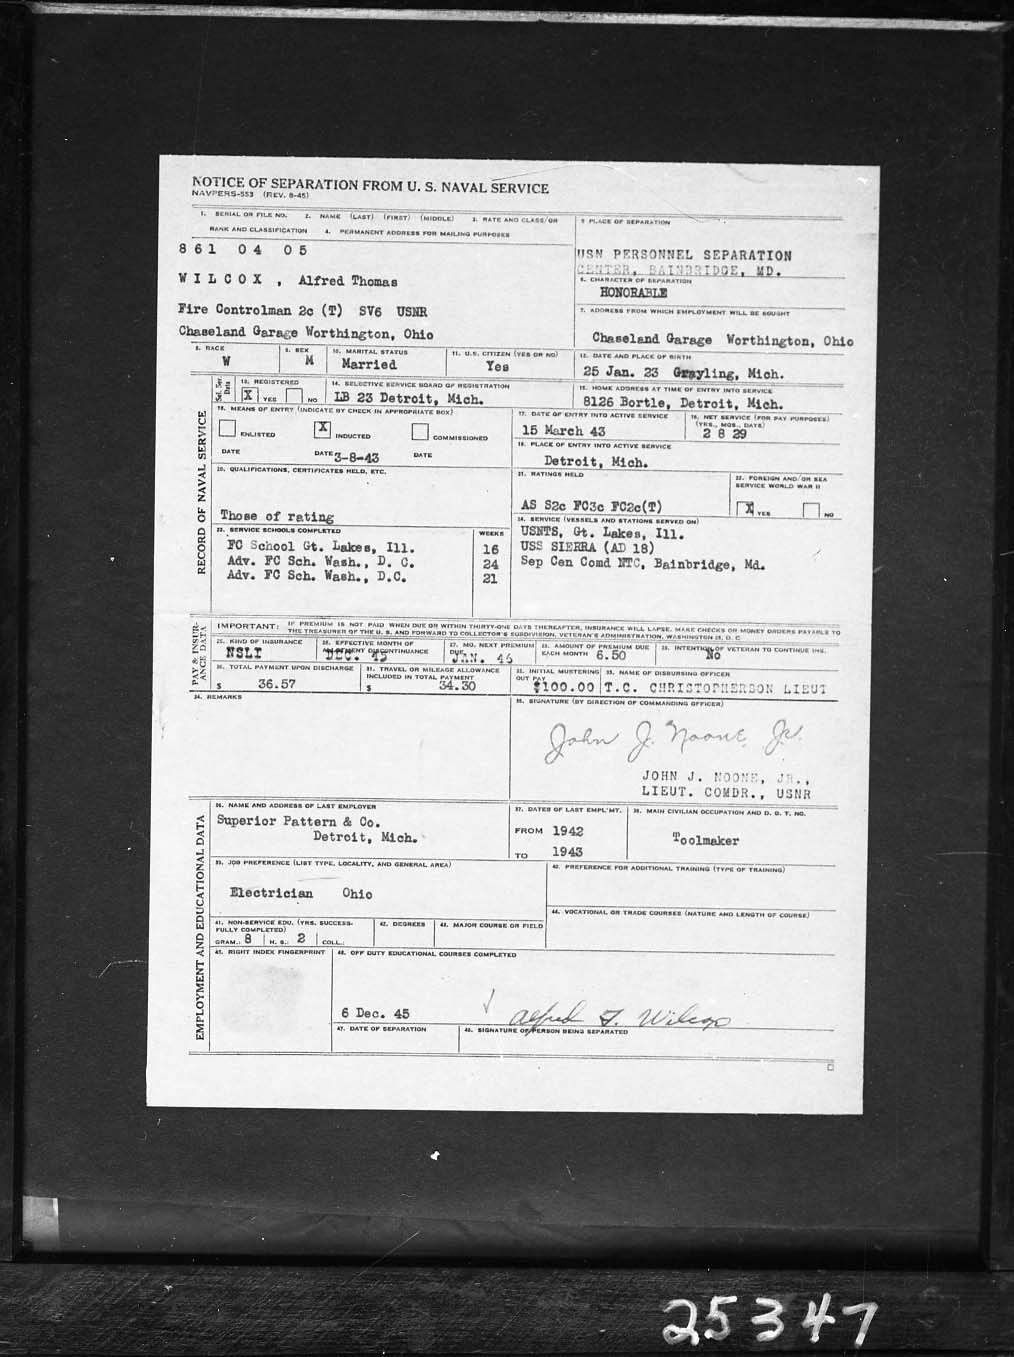 NOTICE OF SEPARATION FROM U. S. NAVAL SERVICE
NAVPERS-553 (REV. 8-45)
1. SERIAL OR FILE NO. 2. NAME (LAST) (FIRST) (MIDDLE) 3. RATE AND CLASS/OR
RANK AND CLASSIFICATION 4. PERMANENT ADDRESS FOR MAILING PURPOSES
861 04 05
WILCOX , Alfred Thomas
Fire Controlman 2c (T) SV6 USNR
Chaseland Garage Worthington, Ohio
5 PLACE OF SEPARATION
USN PERSONNEL SEPARATION
CENTER, BAINBRIDGE, MD.
6. CHARACTER OF SEPARATION
HONORABLE
7. ADDRESS FROM WHICH EMPLOYMENT WILL BE SOUGHT
Chaseland Garage Worthington, Ohio
8. RACE
W
9. SEX
M
10. MARITAL STATUS
Married
11. U.S. CITIZEN (YES OR NO)
Yes
12. DATE AND PLACE OF BIRTH
25 Jan. 23 Grayling, Mich.
Sel. Ser. Data
13. REGISTERED
X YES NO
14. SELECTIVE SERVICE BOARD OF REGISTRATION
LB 23 Detroit, Mich.
15. HOME ADDRESS AT TIME OF ENTRY INTO SERVICE
8126 Bortle, Detroit, Mich.
RECORD OF NAVAL SERVICE
16. MEANS OF ENTRY (INDICATE BY CHECK IN APPROPRIATE BOX)
ENLISTED X INDUCTED COMMISSIONED
DATE DATE 3-8-43 DATE
17. DATE OF ENTRY INTO ACTIVE SERVICE
15 March 43
18. NET SERVICE (FOR PAY PURPOSES)
(YRS., MOS., DAYS)
2 8 29
19. PLACE OF ENTRY INTO ACTIVE SERVICE
Detroit, Mich.
20. QUALIFICATIONS, CERTIFICATES HELD, ETC.
Those of rating
21. RATINGS HELD
AS S2c FC3c FC2c(T)
22. FOREIGN AND/OR SEA
SERVICE WORLD WAR II
X YES NO
23. SERVICE SCHOOLS COMPLETED WEEKS
FC School Gt. Lakes, Ill. 16
Adv. FC Sch. Wash., D. C. 24
Adv. FC Sch. Wash., D.C. 21
24. SERVICE (VESSELS AND STATIONS SERVED ON)
USNTS, Gt. Lakes, Ill.
USS SIERRA (AD 18)
Sep Cen Comd NTC, Bainbridge, Md.
PAY & INSURANCE DATA
IMPORTANT: IF PREMIUM IS NOT PAID WHEN DUE OR WITHIN THIRTY-ONE DAYS THEREAFTER, INSURANCE WILL LAPSE. MAKE CHECKS OR MONEY ORDERS PAYABLE TO
THE TREASURER OF THE U. S. AND FORWARD TO COLLECTOR'S SUBDIVISION, VETERAN'S ADMINISTRATION, WASHINGTON 25, D. C
25. KIND OF INSURANCE
NSLI
26. EFFECTIVE MONTH OF
ALLOTMENT DISCONTINUANCE
DEC. 45
27. MO. NEXT PREMIUM
DUE
JAN. 46
28. AMOUNT OF PREMIUM DUE
EACH MONTH 6.50
29. INTENTION OF VETERAN TO CONTINUE INS.
No
30. TOTAL PAYMENT UPON DISCHARGE
$ 36.57
31. TRAVEL OR MILEAGE ALLOWANCE
INCLUDED IN TOTAL PAYMENT
$ 34.30
32. INITIAL MUSTERING
OUT PAY
$100.00
33. NAME OF DISBURSING OFFICER
T.C. CHRISTOPHERSON LIEUT
34. REMARKS
35. SIGNATURE (BY DIRECTION OF COMMANDING OFFICER)
John J. Noone, Jr.
JOHN J. NOONE, JR.,
LIEUT. COMDR., USNR
EMPLOYMENT AND EDUCATIONAL DATA
36. NAME AND ADDRESS OF LAST EMPLOYER
Superior Pattern & Co.
Detroit, Mich.
37. DATES OF LAST EMPL'MT.
FROM 1942
TO 1943
38. MAIN CIVILIAN OCCUPATION AND D. O. T. NO.
Toolmaker
39. JOB PREFERENCE (LIST TYPE, LOCALITY, AND GENERAL AREA)
Electrician Ohio
40. PREFERENCE FOR ADDITIONAL TRAINING (TYPE OF TRAINING)
41. NON-SERVICE EDU. (YRS. SUCCESS-
FULLY COMPLETED)
GRAM.: 8 H. S.: 2 COLL.:
42. DEGREES
43. MAJOR COURSE OR FIELD
44. VOCATIONAL OR TRADE COURSES (NATURE AND LENGTH OF COURSE)
45. RIGHT INDEX FINGERPRINT
46. OFF DUTY EDUCATIONAL COURSES COMPLETED
6 Dec. 45
47. DATE OF SEPARATION
Alfred T. Wilcox
48. SIGNATURE OF PERSON BEING SEPARATED
25347